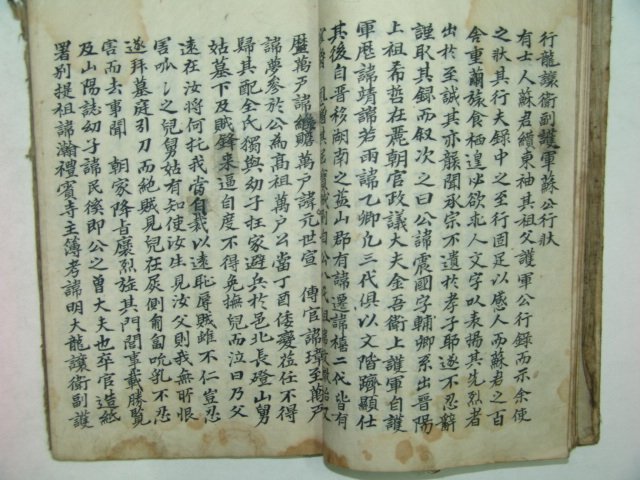 行龍驤衛副護軍蘇公行狀
有士人蘇君鑽東袖其祖父護軍公行錄而示余使
之狀其行夫錄中之行固足以感人而蘇君之百
舍重繭旅食栖遑必欲求人文字以表揚其先烈者
出於至誠其亦厭聞承宗不遺於孝子耶遂不忍辭
謹取其錄而叙次之曰公諱震國字輔卿系出晋陽
上祖希哲在麗朝官政議大夫金吾衛上護軍自護
軍歷諱靖諱若雨諱乙卿凡三代俱以文階躋顯仕
其後自晋移湖南之益山郡有諱遷諱禧二代皆有
歷萬戶諱繼瞻萬戶諱元世宣傳官諱璥至萬戶
諱夢參於公為高祖萬戶公當丁酉倭變莅任不得
歸其配全氏獨與幼子在家避兵於邑北長登山舅
姑墓下及賊鋒來逼自度不得免撫兒而泣曰乃父
遠在汝將何托我當自裁以遠恥辱賊雖不仁豈忍
害呱之之兒舅姑有知使汝生見汝父則我無所恨
遂拜墓庭引刀而絕賊見兒在屍側匍匐吮乳不忍
害而去事聞 朝家降旨褒烈旌其門閭事載勝覧
及山陽誌幼子諱民後即公之曾大夫也卒官造紙
署別提祖諱瀚禮賓寺主簿考諱明大龍驤衛副護